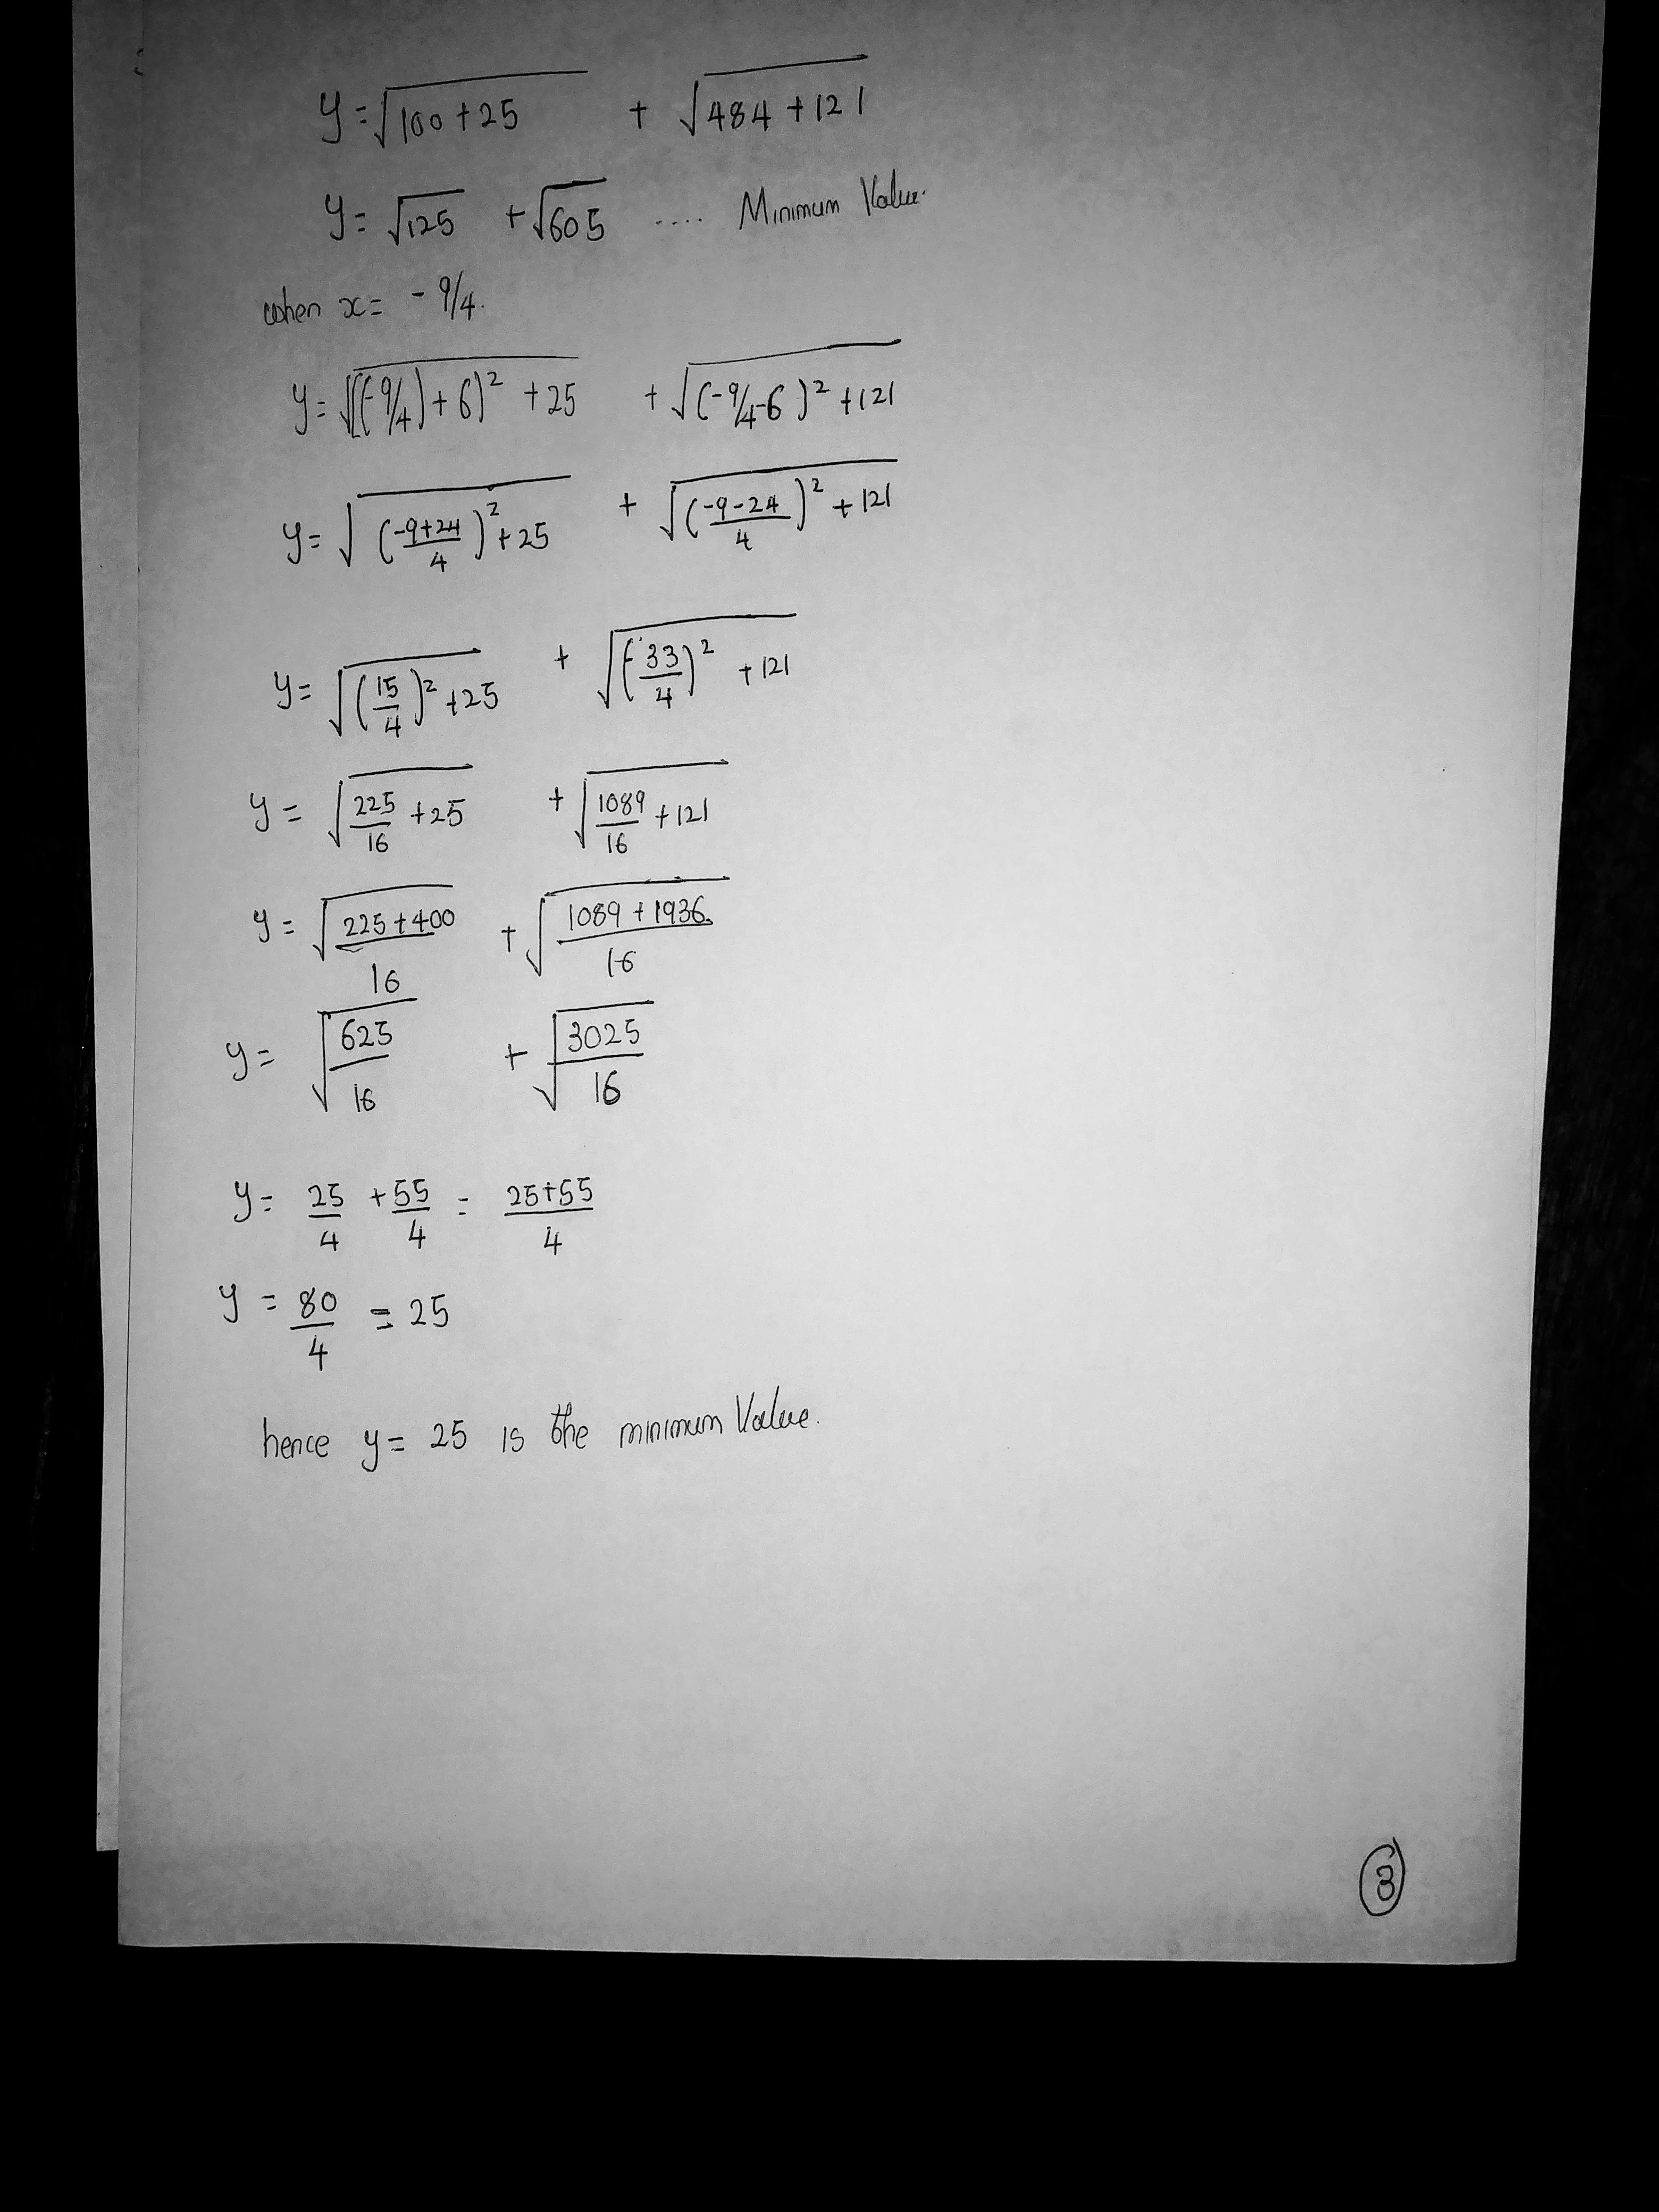 y = √(100 + 25) + √(484 + 121)
y = √125 + √605 .... Minimum Value.
when x = - 9/4.
y = √(((-9/4) + 6)² + 25) + √((-9/4-6)² + 121)
y = √(((-9+24)/4)² + 25) + √(((-9-24)/4)² + 121)
y = √((15/4)² + 25) + √((-33/4)² + 121)
y = √(225/16 + 25) + √(1089/16 + 121)
y = √((225 + 400)/16) + √((1089 + 1936)/16)
y = √(625/16) + √(3025/16)
y = 25/4 + 55/4 = (25+55)/4
y = 80/4 = 25
hence y = 25 is the minimum Value.
3